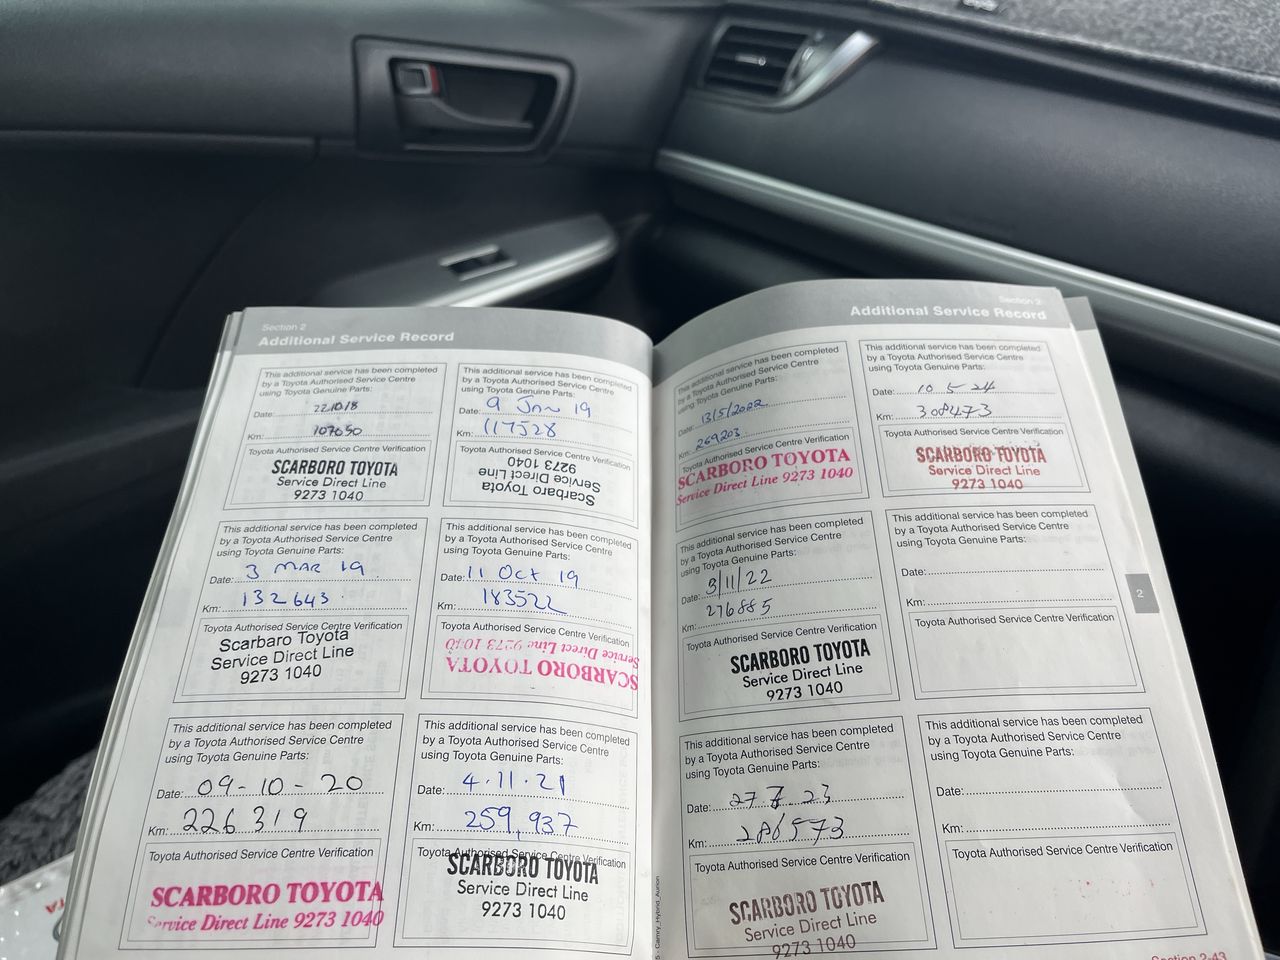 Section 2
Additional Service Record
This additional service has been completed
by a Toyota Authorised Service Centre
using Toyota Genuine Parts:
Date: 22/10/8
Km: 107650
Toyota Authorised Service Centre Verification
SCARBORO TOYOTA
Service Direct Line
9273 1040
This additional service has been completed
by a Toyota Authorised Service Centre
using Toyota Genuine Parts:
Date: 9 Jan 19
Km: 117528
Toyota Authorised Service Centre Verification
Scarbaro Toyota
Service Direct Line
9273 1040
This additional service has been completed
by a Toyota Authorised Service Centre
using Toyota Genuine Parts:
Date: 3 MAR 19
Km: 132643
Toyota Authorised Service Centre Verification
Scarbaro Toyota
Service Direct Line
9273 1040
This additional service has been completed
by a Toyota Authorised Service Centre
using Toyota Genuine Parts:
Date: 11 Oct 19
Km: 183522
Toyota Authorised Service Centre Verification
SCARBORO TOYOTA
Service Direct Line 9273 1040
This additional service has been completed
by a Toyota Authorised Service Centre
using Toyota Genuine Parts:
Date: 09-10-20
Km: 226319
Toyota Authorised Service Centre Verification
SCARBORO TOYOTA
Service Direct Line 9273 1040
This additional service has been completed
by a Toyota Authorised Service Centre
using Toyota Genuine Parts:
Date: 4.11.21
Km: 259,937
Toyota Authorised Service Centre Verification
SCARBORO TOYOTA
Service Direct Line
9273 1040
Section 2
Additional Service Record
This additional service has been completed
by a Toyota Authorised Service Centre
using Toyota Genuine Parts:
Date: 13/5/2022
Km: 269203
Toyota Authorised Service Centre Verification
SCARBORO TOYOTA
Service Direct Line 9273 1040
This additional service has been completed
by a Toyota Authorised Service Centre
using Toyota Genuine Parts:
Date: 10.5.24
Km: 308473
Toyota Authorised Service Centre Verification
SCARBORO TOYOTA
Service Direct Line
9273 1040
This additional service has been completed
by a Toyota Authorised Service Centre
using Toyota Genuine Parts:
Date: 3/11/22
Km: 276885
Toyota Authorised Service Centre Verification
SCARBORO TOYOTA
Service Direct Line
9273 1040
This additional service has been completed
by a Toyota Authorised Service Centre
using Toyota Genuine Parts:
Date:
Km:
Toyota Authorised Service Centre Verification
2
This additional service has been completed
by a Toyota Authorised Service Centre
using Toyota Genuine Parts:
Date: 27.7.23
Km: 286573
Toyota Authorised Service Centre Verification
SCARBORO TOYOTA
Service Direct Line
9273 1040
This additional service has been completed
by a Toyota Authorised Service Centre
using Toyota Genuine Parts:
Date:
Km:
Toyota Authorised Service Centre Verification
Camry_Hybrid_Aurion
Section 2-43